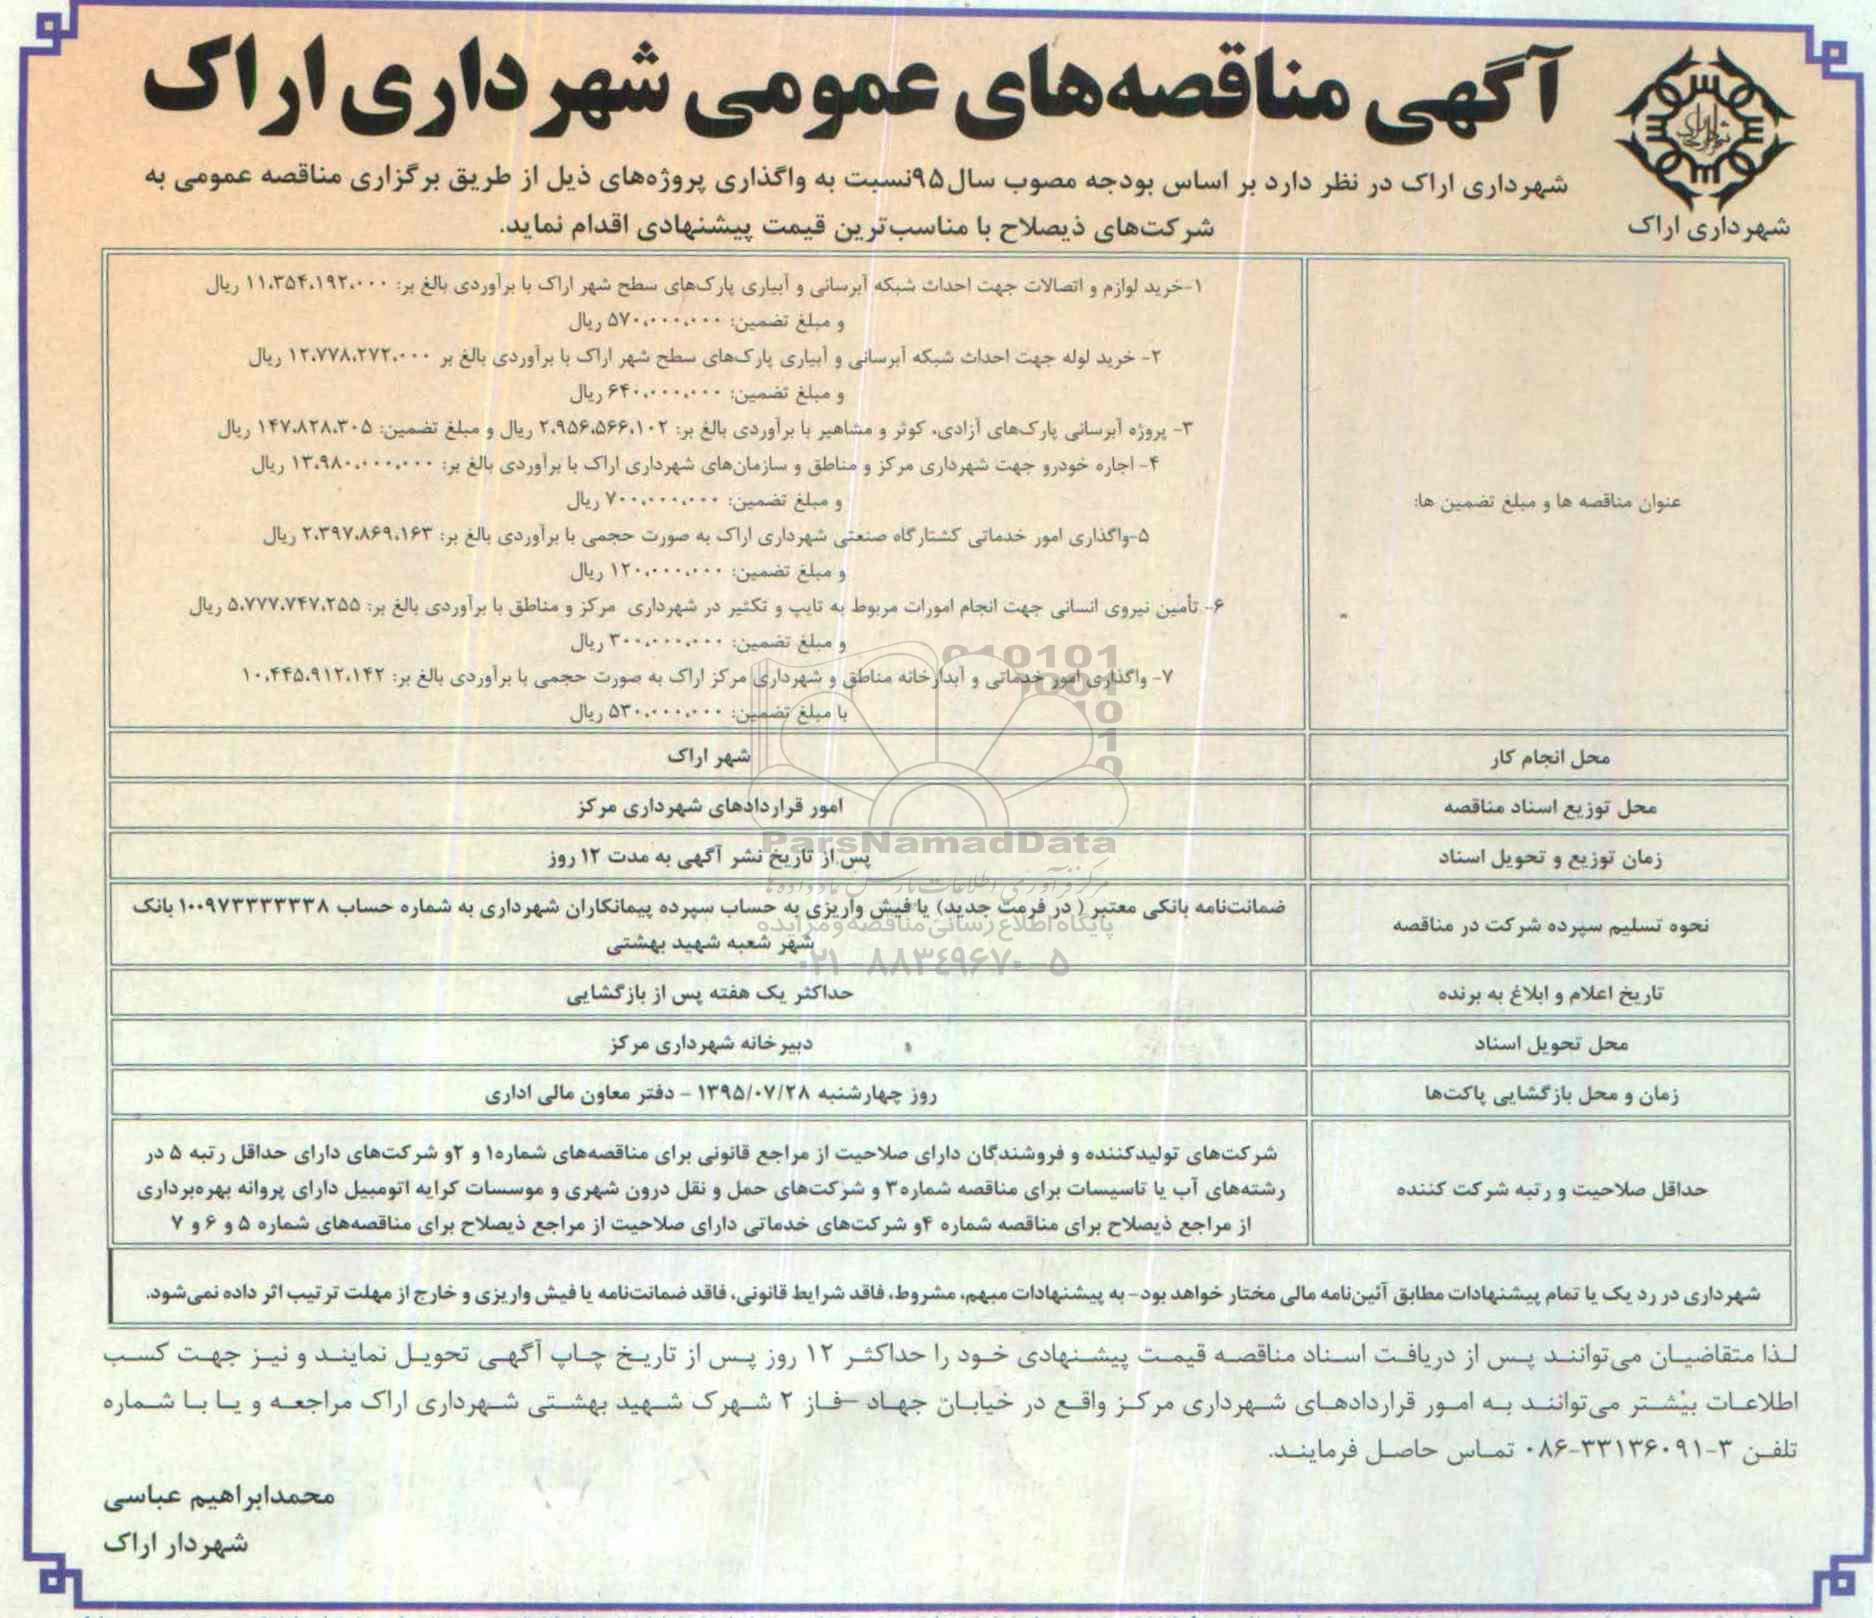 آگهی مناقصه‌های عمومی شهرداری اراک
شهرداری اراک
شهرداری اراک در نظر دارد بر اساس بودجه مصوب سال۹۵نسبت به واگذاری پروژه‌های ذیل از طریق برگزاری مناقصه عمومی به
شرکت‌های ذیصلاح با مناسب‌ترین قیمت پیشنهادی اقدام نماید.
عنوان مناقصه ها و مبلغ تضمین ها:
۱-خرید لوازم و اتصالات جهت احداث شبکه آبرسانی و آبیاری پارک‌های سطح شهر اراک با برآوردی بالغ بر: ۱۱،۳۵۴،۱۹۲،۰۰۰ ریال
و مبلغ تضمین: ۵۷۰،۰۰۰،۰۰۰ ریال
۲- خرید لوله جهت احداث شبکه آبرسانی و آبیاری پارک‌های سطح شهر اراک با برآوردی بالغ بر ۱۲،۷۷۸،۲۷۲،۰۰۰ ریال
و مبلغ تضمین: ۶۴۰،۰۰۰،۰۰۰ ریال
۳- پروژه آبرسانی پارک‌های آزادی، کوثر و مشاهیر با برآوردی بالغ بر: ۲،۹۵۶،۵۶۶،۱۰۲ ریال و مبلغ تضمین: ۱۴۷،۸۲۸،۳۰۵ ریال
۴- اجاره خودرو جهت شهرداری مرکز و مناطق و سازمان‌های شهرداری اراک با برآوردی بالغ بر: ۱۳،۹۸۰،۰۰۰،۰۰۰ ریال
و مبلغ تضمین: ۷۰۰،۰۰۰،۰۰۰ ریال
۵-واگذاری امور خدماتی کشتارگاه صنعتی شهرداری اراک به صورت حجمی با برآوردی بالغ بر: ۲،۳۹۷،۸۶۹،۱۶۳ ریال
و مبلغ تضمین: ۱۲۰،۰۰۰،۰۰۰ ریال
۶- تأمین نیروی انسانی جهت انجام امورات مربوط به تایپ و تکثیر در شهرداری مرکز و مناطق با برآوردی بالغ بر: ۵،۷۷۷،۷۴۷،۲۵۵ ریال
و مبلغ تضمین: ۳۰۰،۰۰۰،۰۰۰ ریال
۷- واگذاری امور خدماتی و آبدارخانه مناطق و شهرداری مرکز اراک به صورت حجمی با برآوردی بالغ بر: ۱۰،۴۴۵،۹۱۲،۱۴۲
با مبلغ تضمین: ۵۳۰،۰۰۰،۰۰۰ ریال
محل انجام کار
شهر اراک
محل توزیع اسناد مناقصه
امور قراردادهای شهرداری مرکز
زمان توزیع و تحویل اسناد
پس از تاریخ نشر آگهی به مدت ۱۲ روز
نحوه تسلیم سپرده شرکت در مناقصه
ضمانت‌نامه بانکی معتبر ( در فرمت جدید) یا فیش واریزی به حساب سپرده پیمانکاران شهرداری به شماره حساب ۱۰۰۹۷۳۳۳۳۳۳۸ بانک
شهر شعبه شهید بهشتی
تاریخ اعلام و ابلاغ به برنده
حداکثر یک هفته پس از بازگشایی
محل تحویل اسناد
دبیرخانه شهرداری مرکز
زمان و محل بازگشایی پاکت‌ها
روز چهارشنبه ۱۳۹۵/۰۷/۲۸ - دفتر معاون مالی اداری
حداقل صلاحیت و رتبه شرکت کننده
شرکت‌های تولیدکننده و فروشندگان دارای صلاحیت از مراجع قانونی برای مناقصه‌های شماره۱ و ۲و شرکت‌های دارای حداقل رتبه ۵ در
رشته‌های آب یا تاسیسات برای مناقصه شماره۳ و شرکت‌های حمل و نقل درون شهری و موسسات کرایه اتومبیل دارای پروانه بهره‌برداری
از مراجع ذیصلاح برای مناقصه شماره ۴و شرکت‌های خدماتی دارای صلاحیت از مراجع ذیصلاح برای مناقصه‌های شماره ۵ و ۶ و ۷
شهرداری در رد یک یا تمام پیشنهادات مطابق آئین‌نامه مالی مختار خواهد بود- به پیشنهادات مبهم، مشروط، فاقد شرایط قانونی، فاقد ضمانت‌نامه یا فیش واریزی و خارج از مهلت ترتیب اثر داده نمی‌شود.
لذا متقاضیان می‌توانند پس از دریافت اسناد مناقصه قیمت پیشنهادی خود را حداکثر ۱۲ روز پس از تاریخ چاپ آگهی تحویل نمایند و نیز جهت کسب
اطلاعات بیشتر می‌توانند به امور قراردادهای شهرداری مرکز واقع در خیابان جهاد -فاز ۲ شهرک شهید بهشتی شهرداری اراک مراجعه و یا با شماره
تلفن ۳-۳۳۱۳۶۰۹۱-۰۸۶ تماس حاصل فرمایند.
محمدابراهیم عباسی
شهردار اراک
ParsNamadData
مرکز فرآوری اطلاعات پارس نماد داده ها
پایگاه اطلاع رسانی مناقصه و مزایده
۰۲۱-۸۸۳۴۹۶۷۰-۵